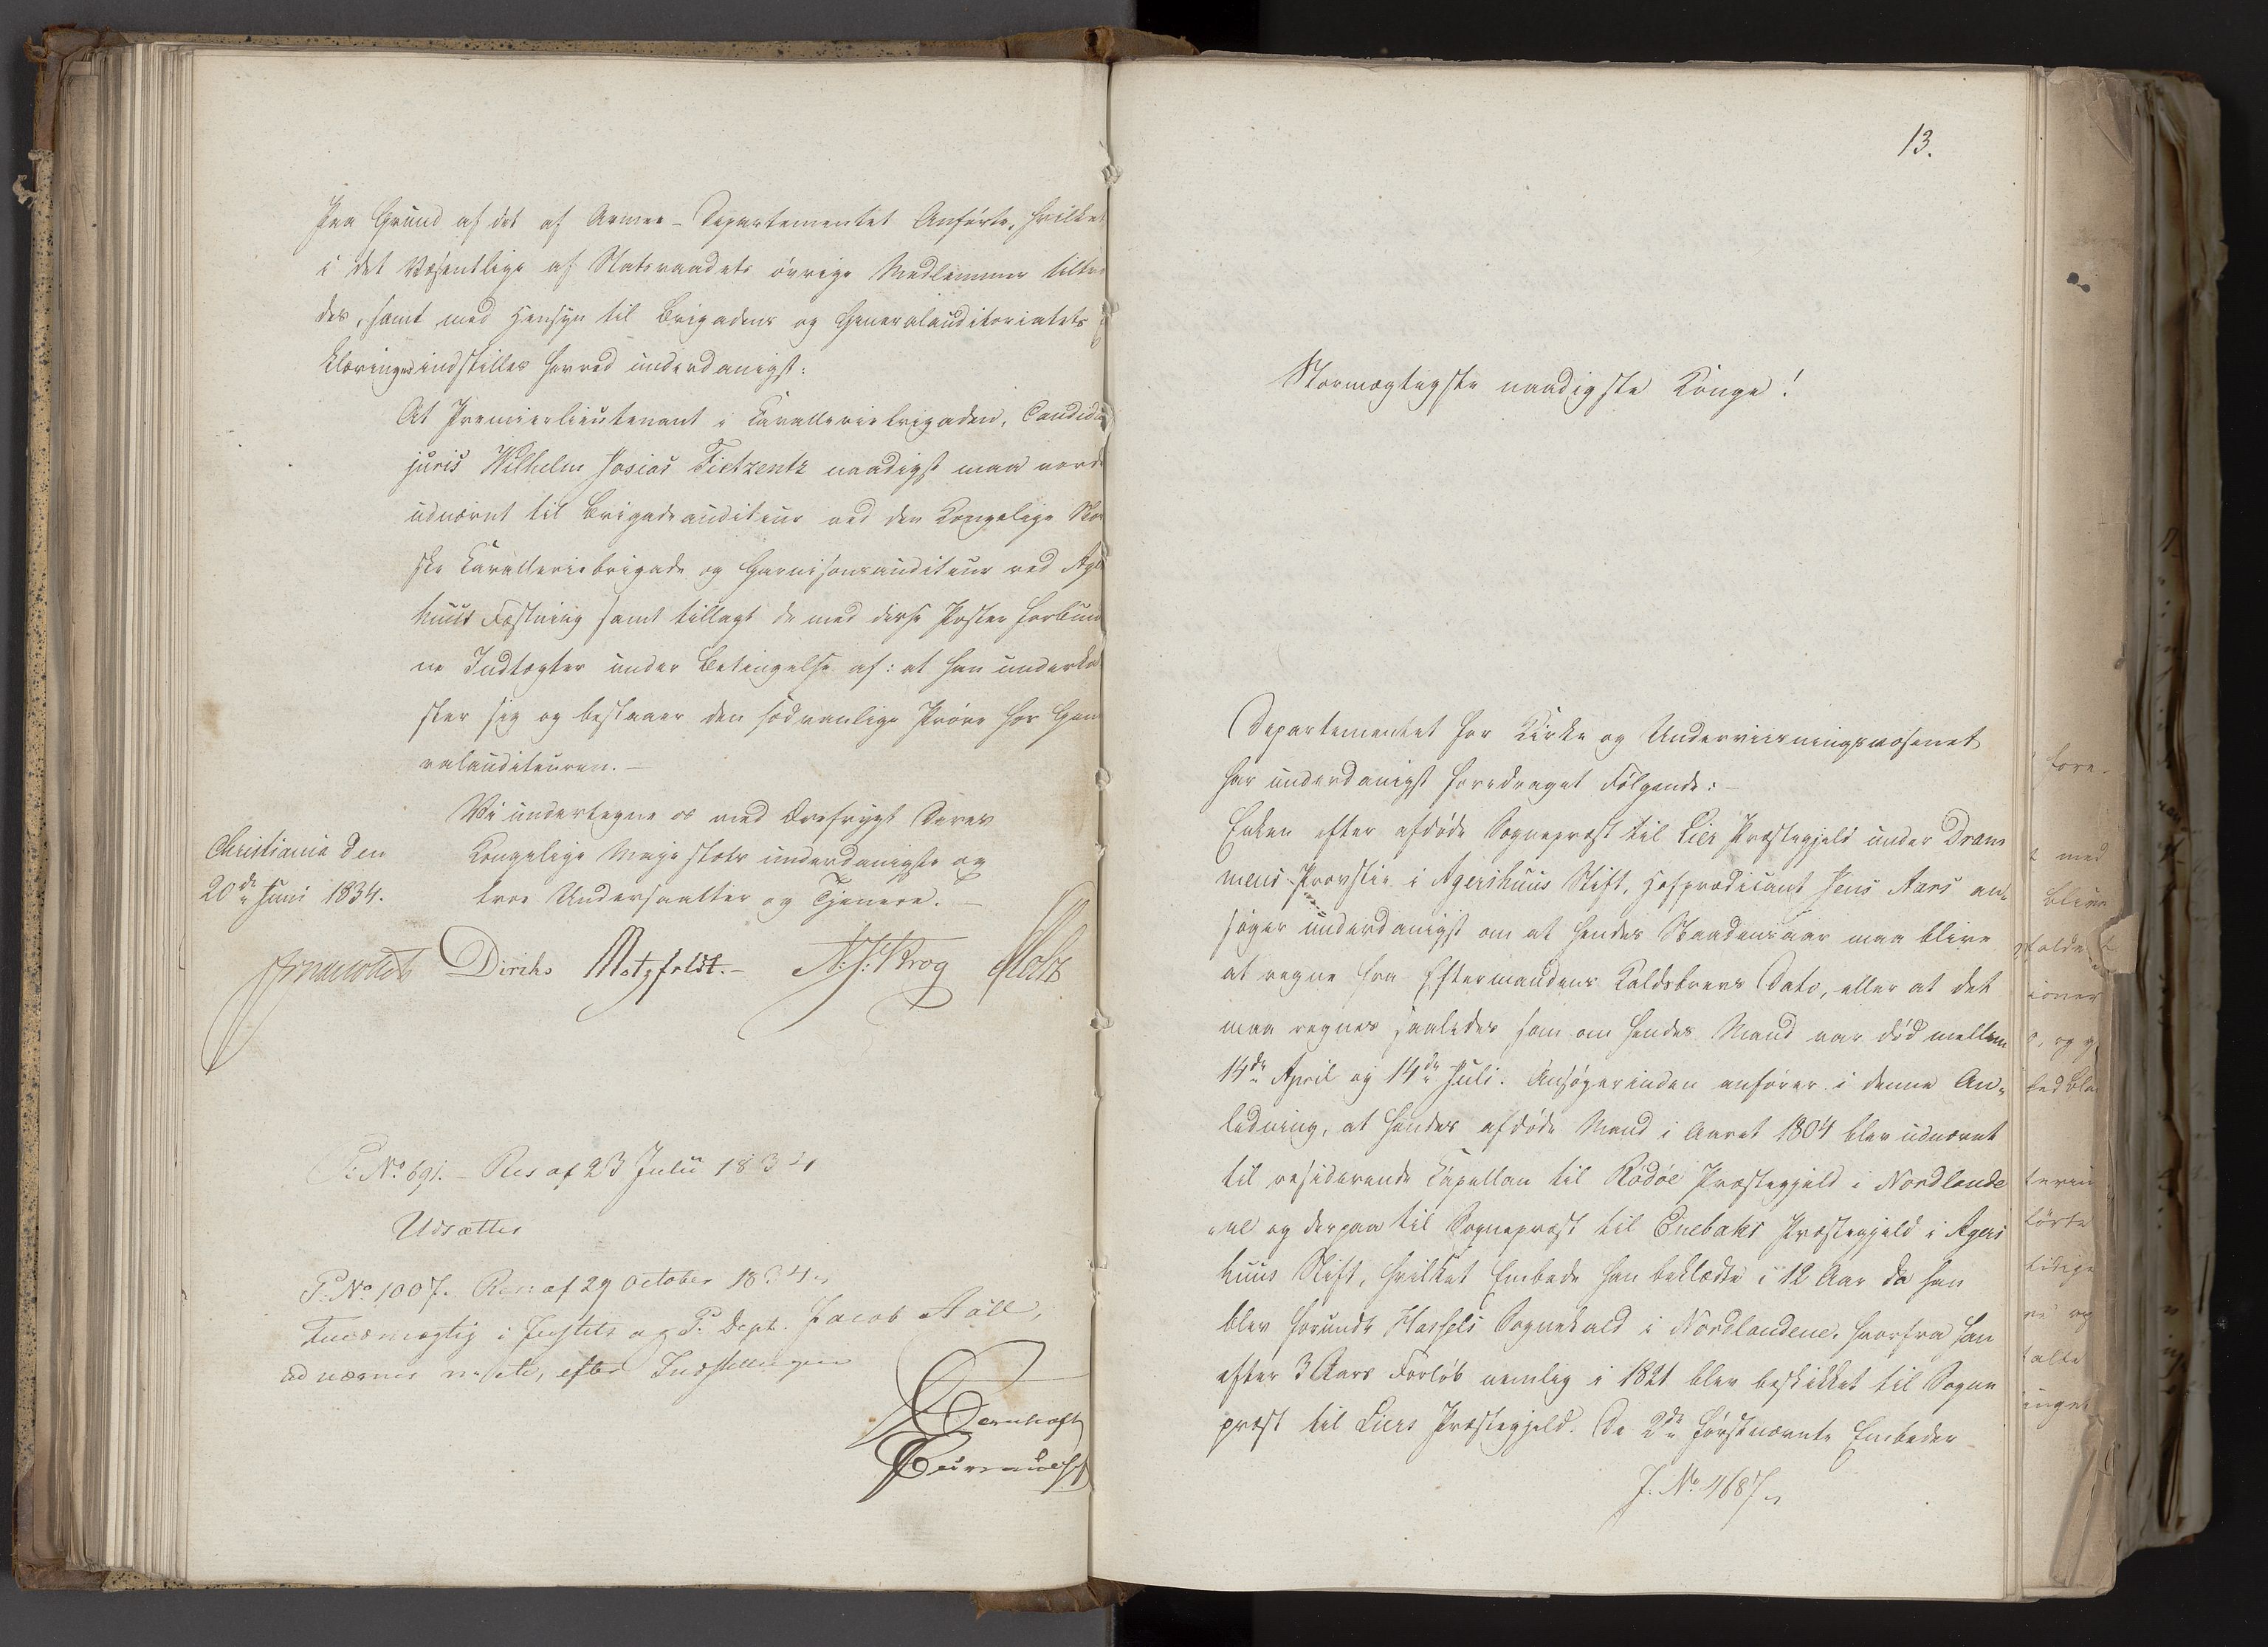 Paa Grund af det af Armee-Departementet Anførte, hvilket
i det Væsentlige af Statsraadets øvrige Medlemmer tiltræ
des, samt med Hensyn til Brigadens og Generalauditoriatets
klæringer indstilles herved underdanigst:
At Premierlieutenant i Cavalleriebrigaden, Candida
juris Wilhelm Josias Tietzentz naadigst maa vorde
udnævnt til Brigadeauditeur ved den Kongelige Nor
ske Cavalleriebrigade og Garnisonsauditeur ved Agers
huus Fæstning samt tillagt de med disse Poster forbun
ne Indtægter under Betingelse af: at han underka
ster sig og bestaaer den sædvanlige Prøve for Gene
ralauditeuren. —
Vi undertegne os med Ærefrygt Deres
Kongelige Majestæts underdanigste og
troe Undersaatter og Tjenere. —
Christiania den
20de Juni 1834.
Diriks Motzfeldt. — N. J. Krog Holst
P: No 691. — Res af 23 Julii 1834
Udsættes
P. No 1007. Res: af 29 October 1834
Fuldmægtig i Justits og P. Dept. Jacob Aall,
udnævnes efter Indstillingen
13.
Stormægtigste naadigste Konge!
Departementet for Kirke og Underviisningsvæsenet
har underdanigst foredraget Følgende: —
Enken efter afdøde Sognepræst til Lier Præstegjeld under Dram
mens Provstie i Agershuus Stift, Hofprædicant Jens Aars an-
søger underdanigst om at hendes Naadensaar maa blive
at regne fra Eftermandens Kaldsbrevs Dato, eller at det
maa regnes saaledes som om hendes Mand var død mellem
14de April og 14de Juli. Ansøgerinden anfører i denne An-
ledning, at hendes afdøde Mand i Aaret 1804 blev udnævnt
til residerende Capellan til Rødøe Præstegjeld i Nordlande
ne og derpaa til Sognepræst til Enebaks Præstegjeld i Agers
huus Stift, hvilket Embede han beklædte i 12 Aar da han
blev forundt Hassels Sognekald i Nordlandene, hvorfra han
efter 3 Aars Forløb nemlig i 1821 blev beskikket til Sogne
præst til Liers Præstegjeld. De 2de førstnævnte Embeder
J. No 4687